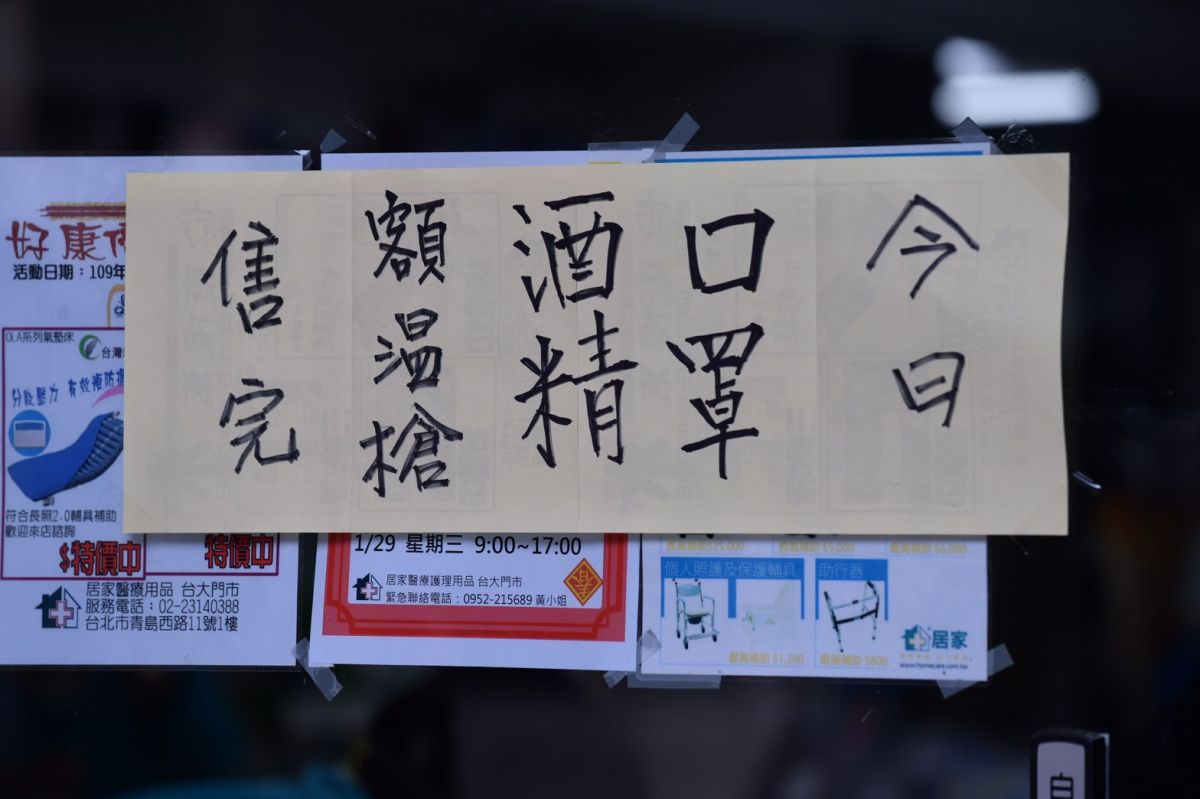 今日
口罩
酒精
額溫槍
售完
好康
活動日期：109年
OLA系列氣墊床
台灣
分散壓力 有效預防
符合長照2.0輔具補助
歡迎來店諮詢
$特價中
特價中
居家醫療用品 台大門市
服務電話：02-23140388
台北市青島西路11號1樓
1/29 星期三 9:00~17:00
居家醫療護理用品 台大門市
緊急聯絡電話：0952-215689 黃小姐
最高補助$25,000
最高補助 $5,000
最高補助 $6,000
個人照護及保護輔具
助行器
最高補助 $1,200
最高補助 $800
居家
www.homecare.com.tw
自